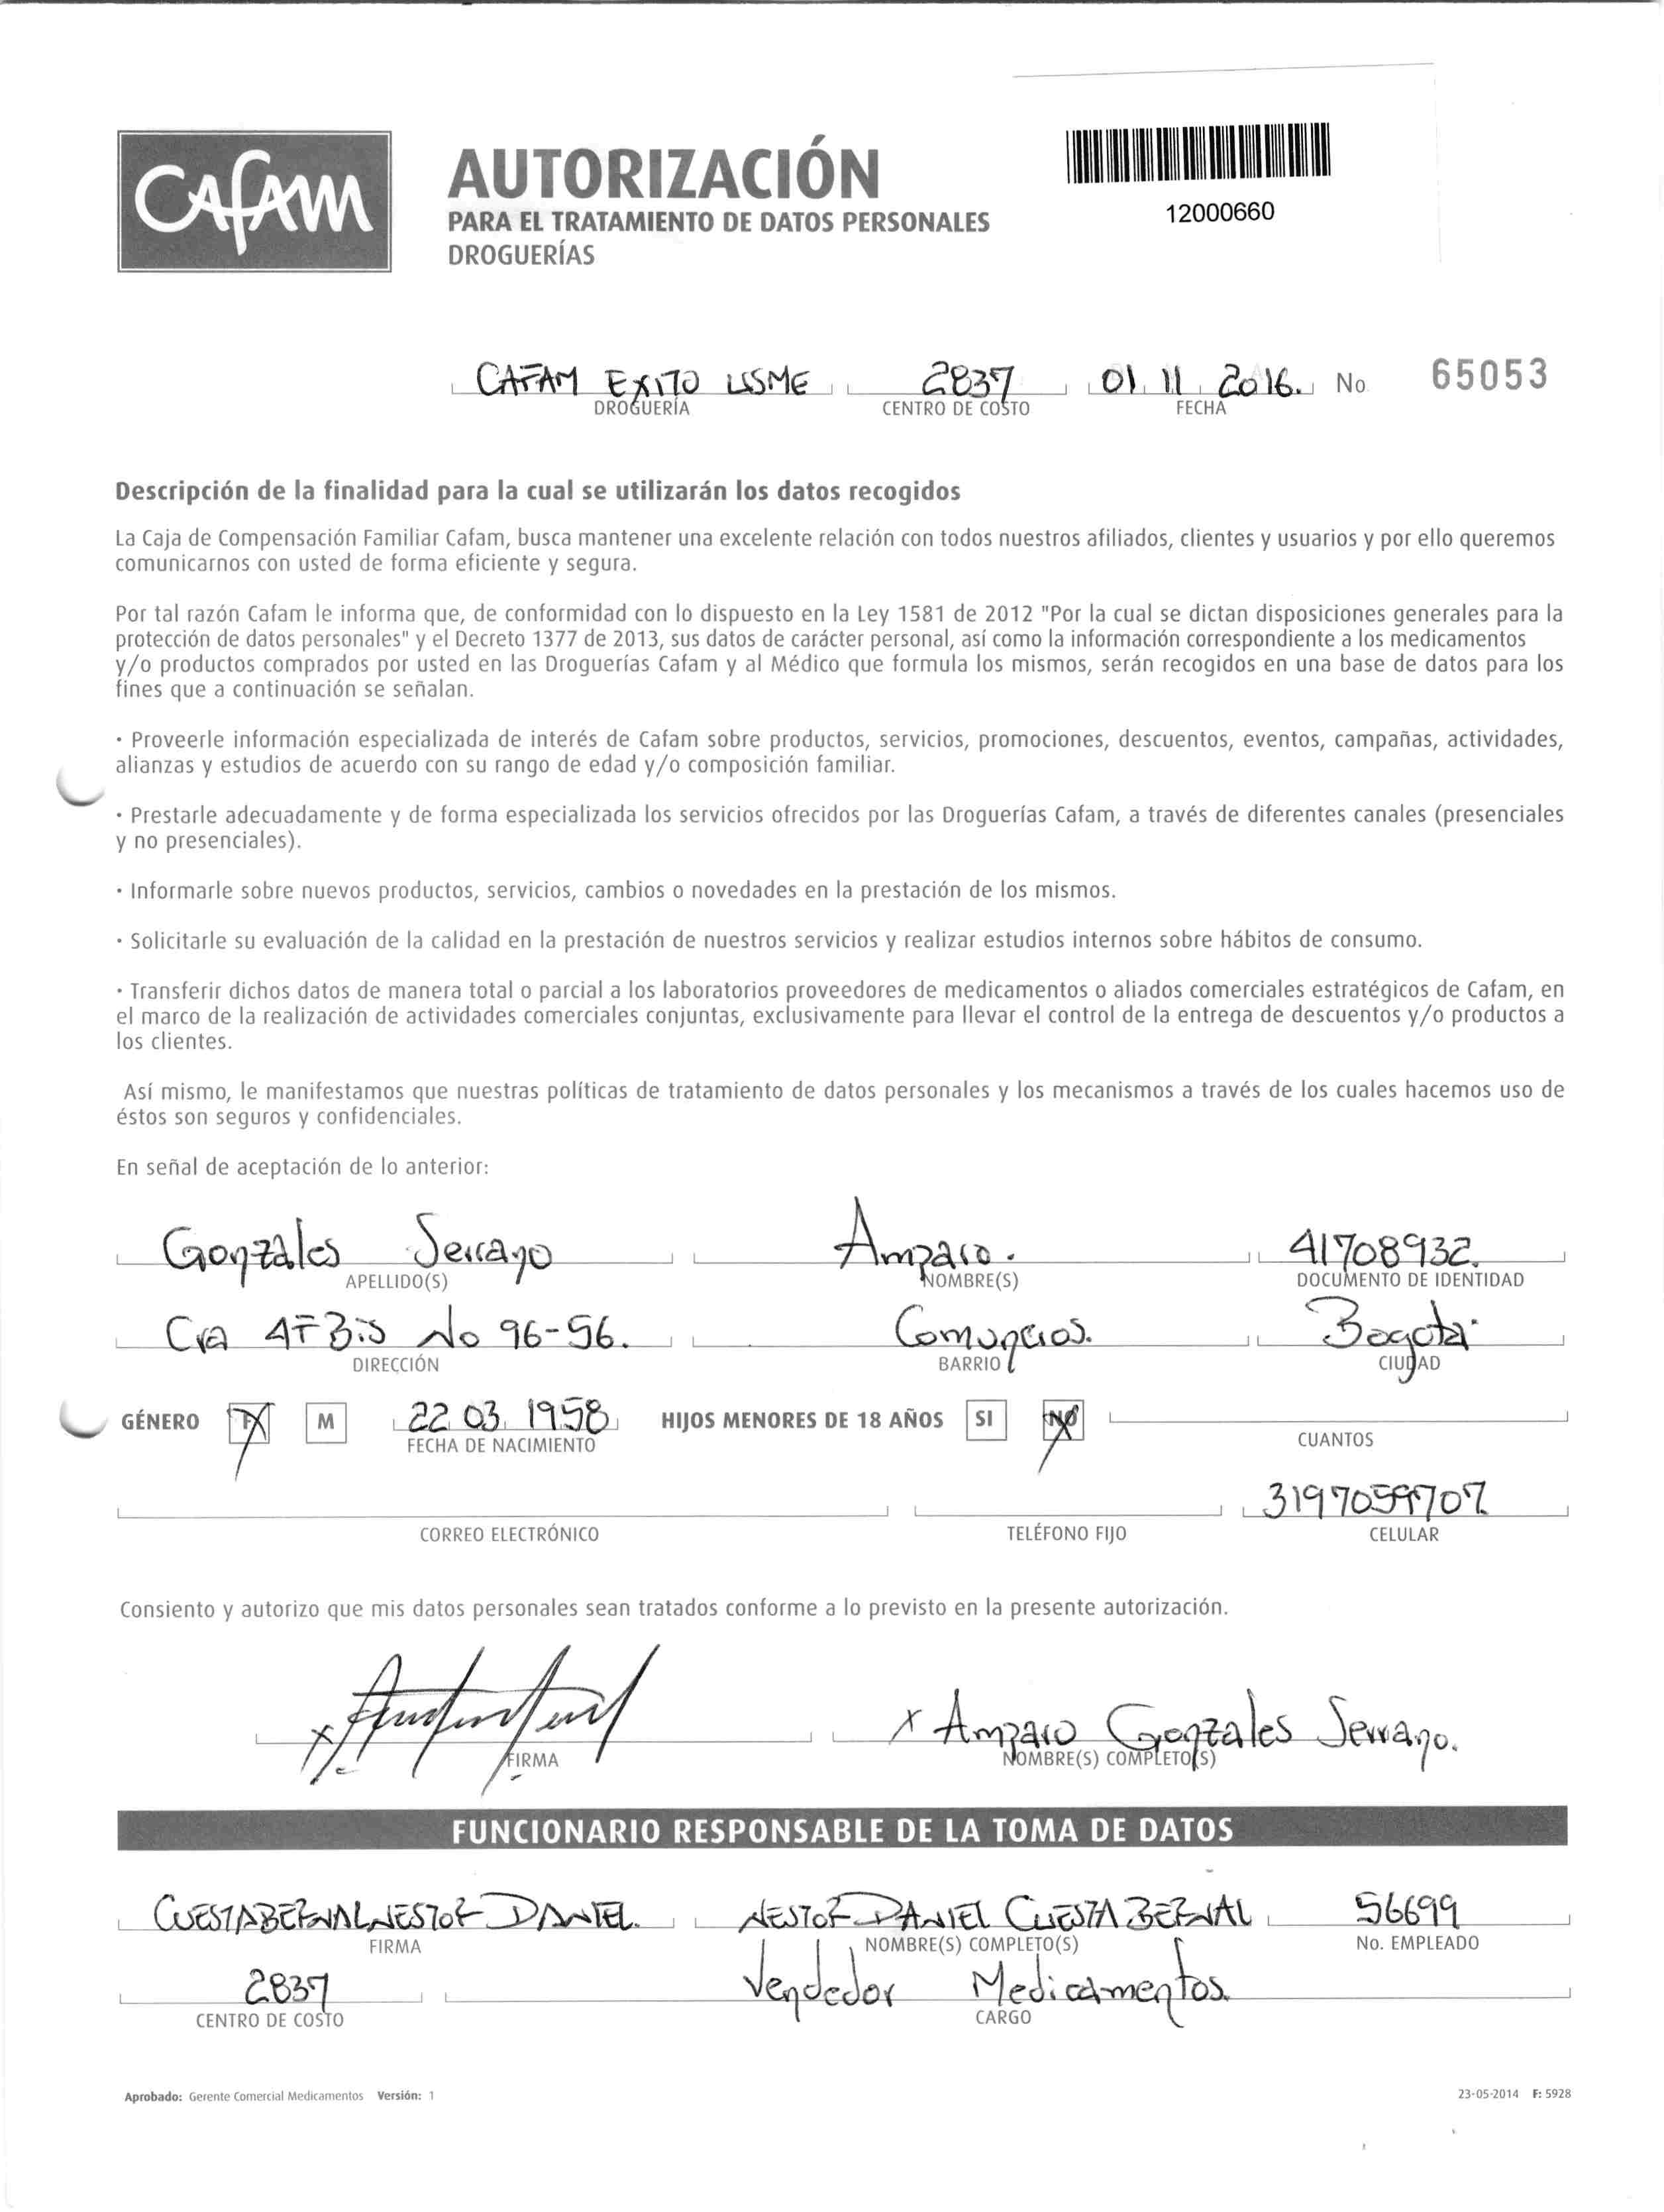 Cafam
AUTORIZACIÓN
PARA EL TRATAMIENTO DE DATOS PERSONALES
DROGUERÍAS
12000660
CAFAM EXITO USME 2837 01 11 2016. No. 65053
DROGUERÍA CENTRO DE COSTO FECHA
Descripción de la finalidad para la cual se utilizarán los datos recogidos
La Caja de Compensación Familiar Cafam, busca mantener una excelente relación con todos nuestros afiliados, clientes y usuarios y por ello queremos
comunicarnos con usted de forma eficiente y segura.
Por tal razón Cafam le informa que, de conformidad con lo dispuesto en la Ley 1581 de 2012 "Por la cual se dictan disposiciones generales para la
protección de datos personales" y el Decreto 1377 de 2013, sus datos de carácter personal, así como la información correspondiente a los medicamentos
y/o productos comprados por usted en las Droguerías Cafam y al Médico que formula los mismos, serán recogidos en una base de datos para los
fines que a continuación se señalan.
· Proveerle información especializada de interés de Cafam sobre productos, servicios, promociones, descuentos, eventos, campañas, actividades,
alianzas y estudios de acuerdo con su rango de edad y/o composición familiar.
· Prestarle adecuadamente y de forma especializada los servicios ofrecidos por las Droguerías Cafam, a través de diferentes canales (presenciales
y no presenciales).
· Informarle sobre nuevos productos, servicios, cambios o novedades en la prestación de los mismos.
· Solicitarle su evaluación de la calidad en la prestación de nuestros servicios y realizar estudios internos sobre hábitos de consumo.
· Transferir dichos datos de manera total o parcial a los laboratorios proveedores de medicamentos o aliados comerciales estratégicos de Cafam, en
el marco de la realización de actividades comerciales conjuntas, exclusivamente para llevar el control de la entrega de descuentos y/o productos a
los clientes.
Así mismo, le manifestamos que nuestras políticas de tratamiento de datos personales y los mecanismos a través de los cuales hacemos uso de
éstos son seguros y confidenciales.
En señal de aceptación de lo anterior:
Gonzales Serrano Amparo. 41708932.
APELLIDO(S) NOMBRE(S) DOCUMENTO DE IDENTIDAD
Cra 4F Bis No 96-56. Comuneros. Bogota
DIRECCIÓN BARRIO CIUDAD
GÉNERO F M 22 03 1958 HIJOS MENORES DE 18 AÑOS SI NO
FECHA DE NACIMIENTO CUANTOS
CORREO ELECTRÓNICO TELÉFONO FIJO CELULAR
Consiento y autorizo que mis datos personales sean tratados conforme a lo previsto en la presente autorización.
x Amparo Gonzales Serrano.
FIRMA NOMBRE(S) COMPLETO(S)
FUNCIONARIO RESPONSABLE DE LA TOMA DE DATOS
CUESTA BERNAL NESTOR DANIEL. NESTOR DANIEL CUESTA BERNAL 56699
FIRMA NOMBRE(S) COMPLETO(S) No. EMPLEADO
2837 Vendedor Medicamentos.
CENTRO DE COSTO CARGO
Aprobado: Gerente Comercial Medicamentos Versión: 1 23-05-2014 F: 5928